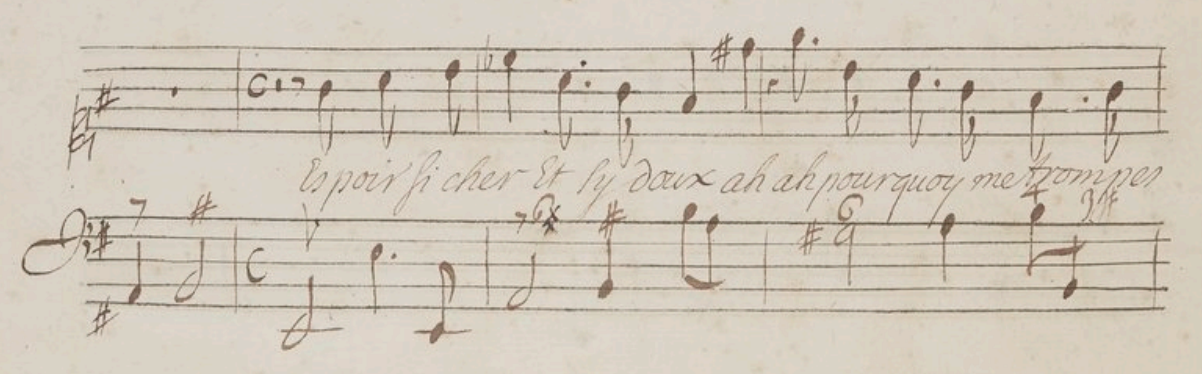 Espoir si cher Et sy doux ah ah pourquoy me trompes